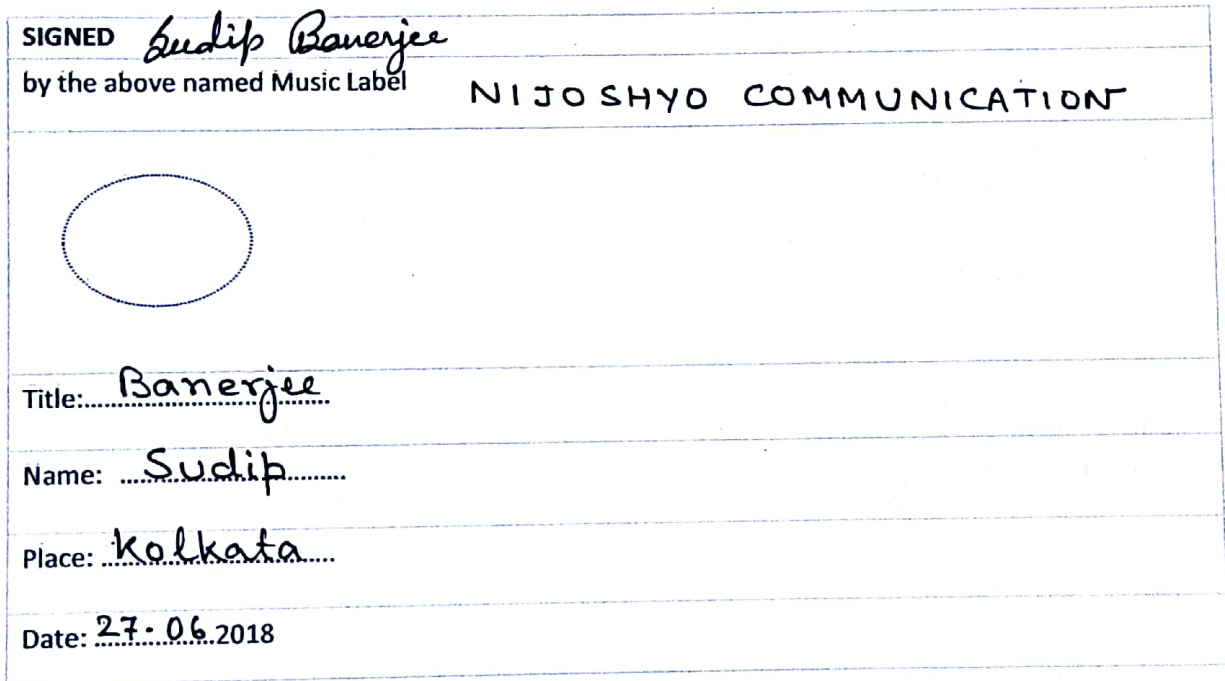 SIGNED Sudip Banerjee
by the above named Music Label NIJOSHYO COMMUNICATION
Title:.....Banerjee
Name: .....Sudip.........
Place: ...Kolkata.....
Date: 27.06.2018